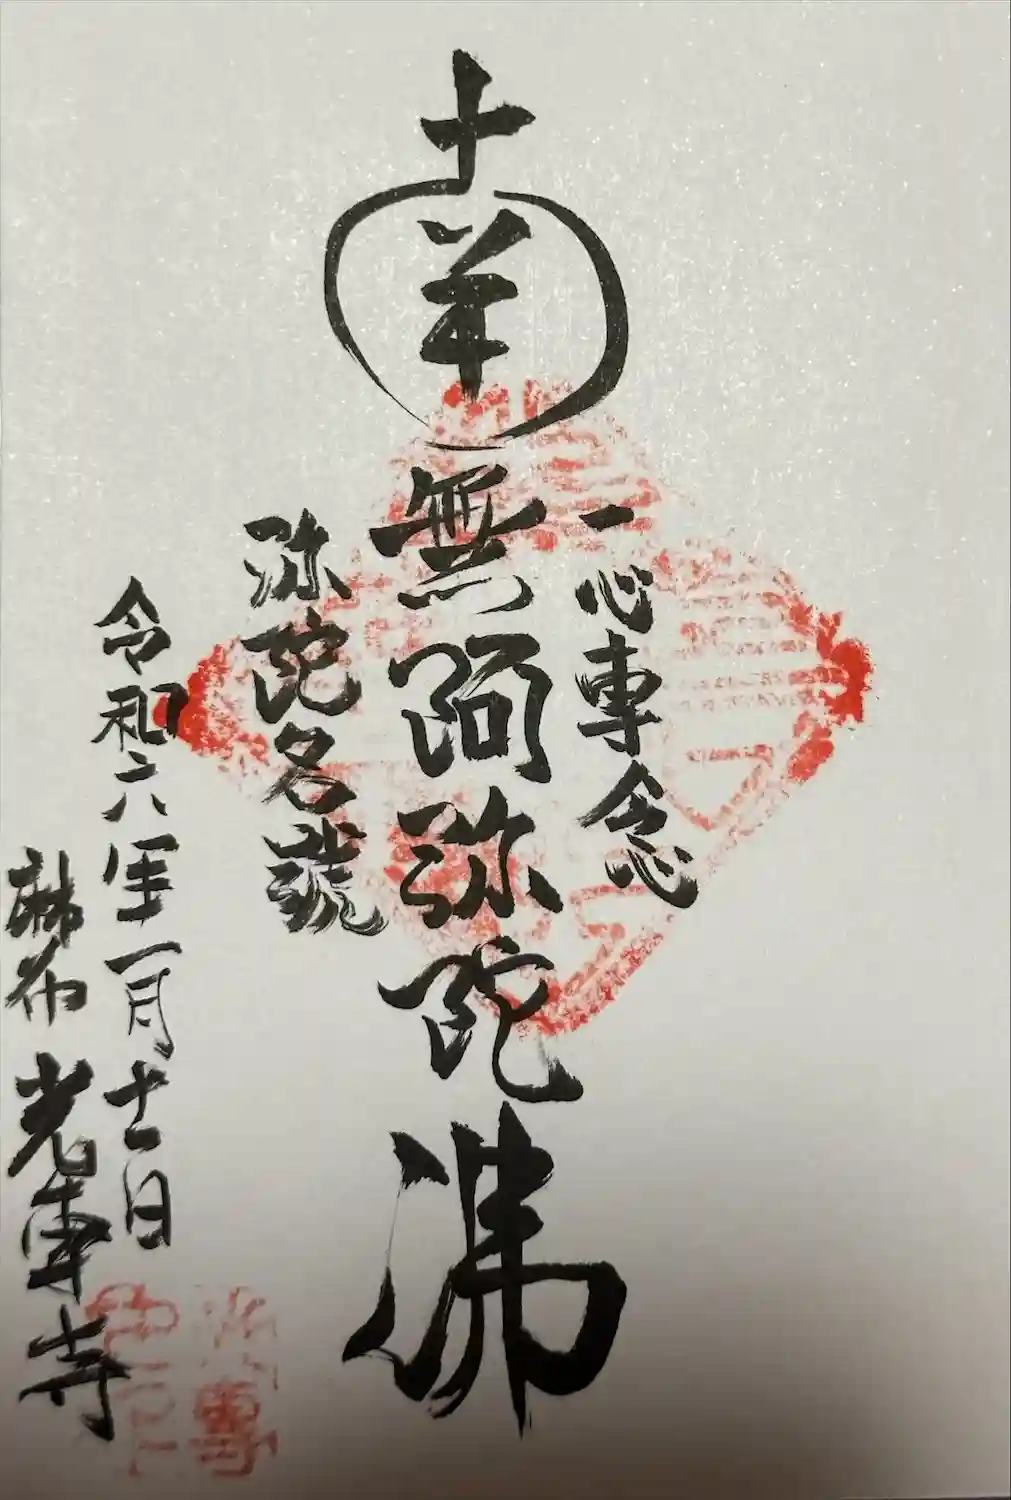 一心專念
南無阿弥陀佛
弥陀名號
令和六年一月十一日
麻布 光專寺